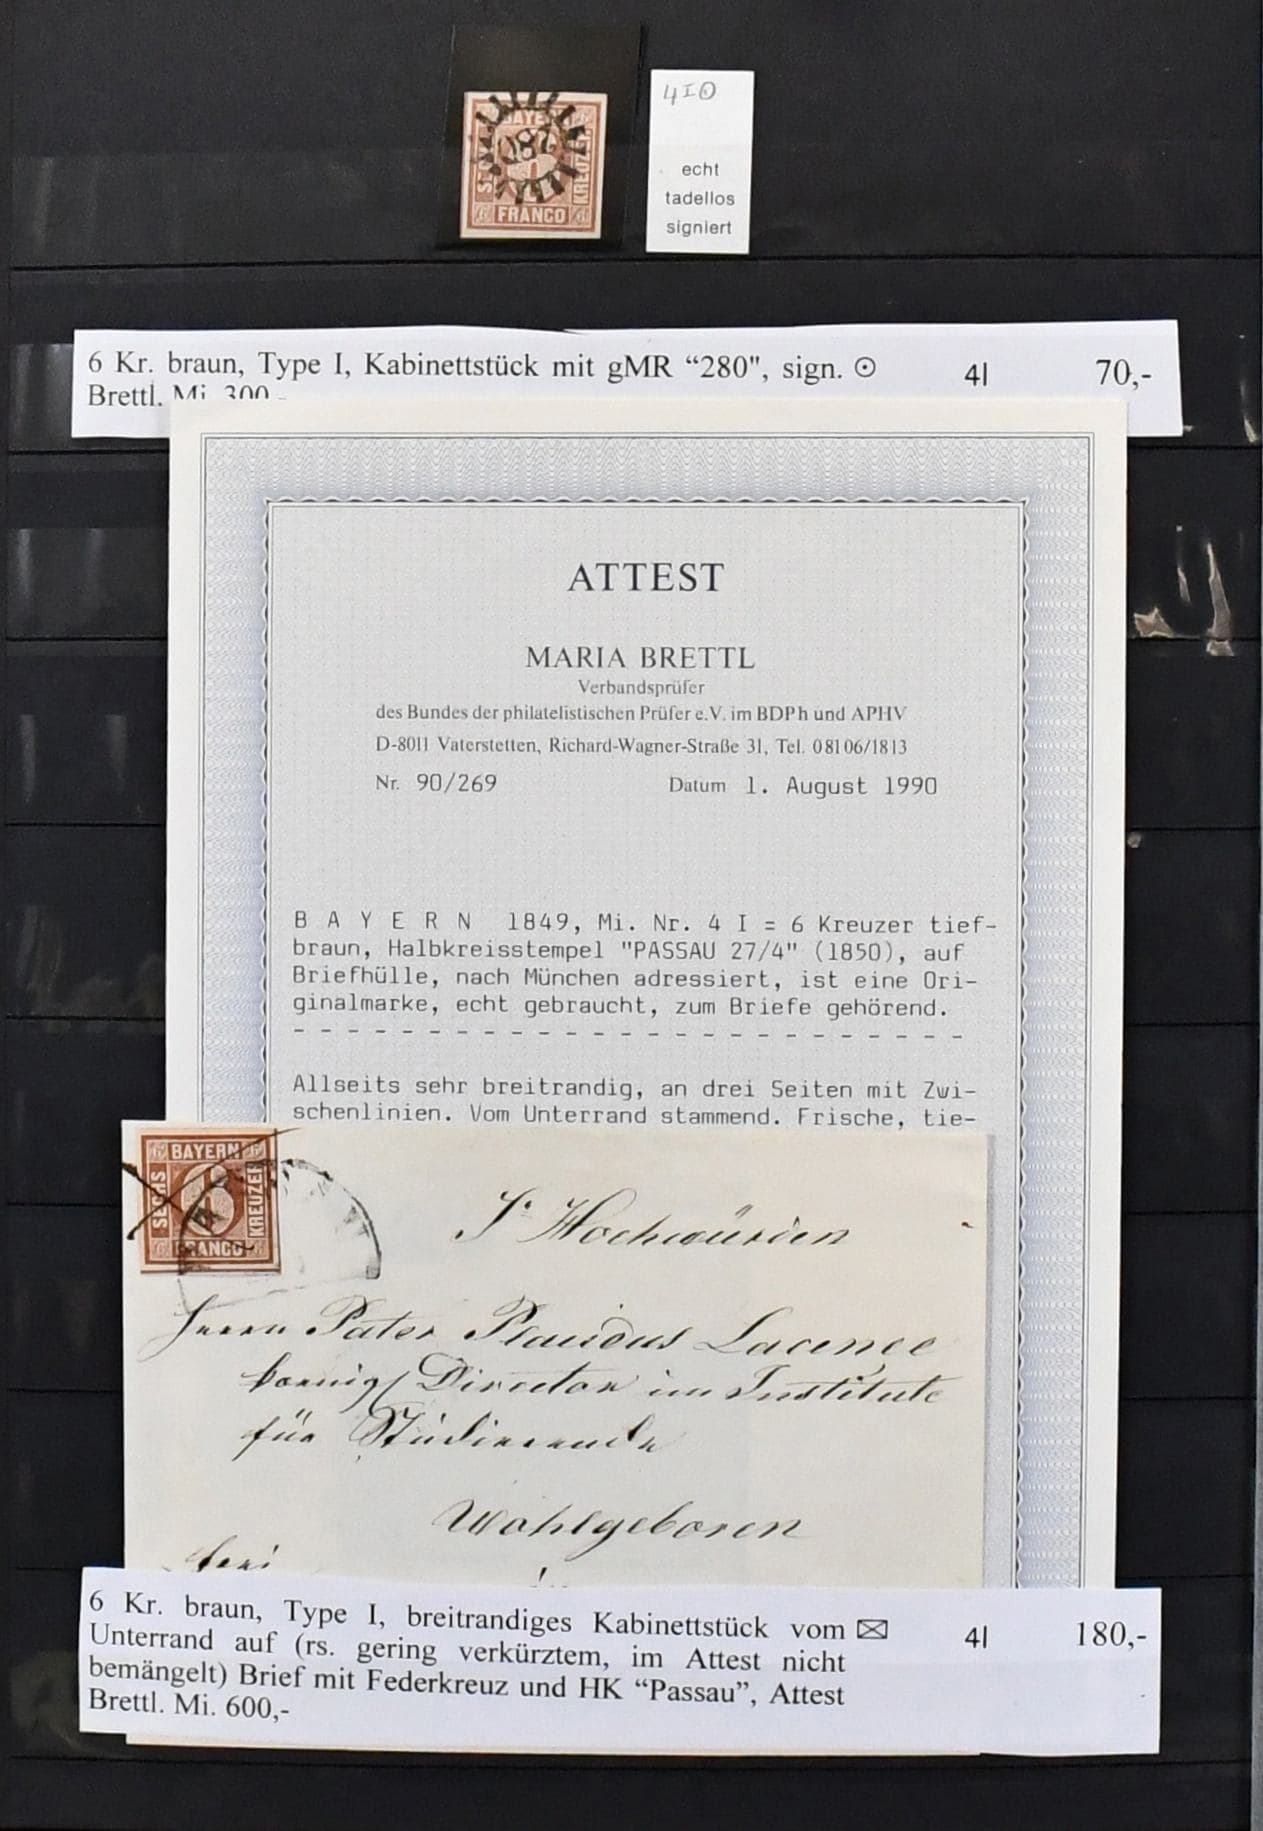 BAYERN
SECHS
KREUZER
280
FRANCO
4 I ⊙
echt
tadellos
signiert
6 Kr. braun, Type I, Kabinettstück mit gMR “280", sign. ⊙ 4I 70,-
Brettl. Mi. 300,-
ATTEST
MARIA BRETTL
Verbandsprüfer
des Bundes der philatelistischen Prüfer e.V. im BDPh und APHV
D-8011 Vaterstetten, Richard-Wagner-Straße 31, Tel. 08106/1813
Nr. 90/269 Datum 1. August 1990
B A Y E R N 1849, Mi. Nr. 4 I = 6 Kreuzer tief-
braun, Halbkreisstempel "PASSAU 27/4" (1850), auf
Briefhülle, nach München adressiert, ist eine Ori-
ginalmarke, echt gebraucht, zum Briefe gehörend.
- - - - - - - - - - - - - - - - - - - - - - - - -
Allseits sehr breitrandig, an drei Seiten mit Zwi-
schenlinien. Vom Unterrand stammend. Frische, tie-
BAYERN
SECHS
6
KREUZER
FRANCO
Sr Hochwürden
Herrn Pater Placidus
koenigl Director im Institute
für Studierende
Wohlgeboren
frei
6 Kr. braun, Type I, breitrandiges Kabinettstück vom ✉ 4I 180,-
Unterrand auf (rs. gering verkürztem, im Attest nicht
bemängelt) Brief mit Federkreuz und HK “Passau”, Attest
Brettl. Mi. 600,-